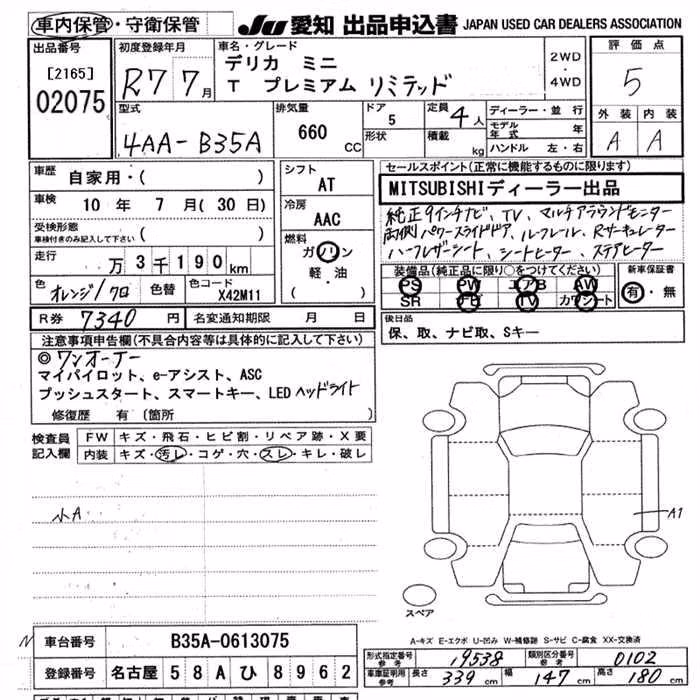 車内保管・守衛保管 JU 愛知 出品申込書 JAPAN USED CAR DEALERS ASSOCIATION
出品番号 初度登録年月 車名・グレード 評価点
[2165] R7 7月 デリカ ミニ 2WD・4WD 5
02075 T プレミアム リミテッド
型式 排気量 ドア 定員 4人 ディーラー・並行 外装 内装
4AA-B35A 660 CC 5 形状 積載 kg モデル年式 年 A A
ハンドル 左・右
車歴 自家用・( ) シフト AT セールスポイント(正常に機能するものに限ります)
車検 10年 7月(30日) 冷房 AAC MITSUBISHIディーラー出品
受検形態 車検付きのみ記入して下さい ( ) 燃料 ガソリン 純正9インチナビ、TV、マルチアラウンドモニター
両側パワースライドドア、ルーフレール、Rサーキュレーター
走行 万3千190km 軽・油 ( ) ハーフレザーシート、シートヒーター、ステアヒーター
装備品(純正品に限り○をつけてください) 新車保証書
色 オレンジ/クロ 色替 色コード X42M11 PS PW エアB AW 有・無
SR ナビ TV カワシート
R券 7340円 名変通知期限 月 日 後日品
保、取、ナビ取、Sキー
注意事項申告欄(不具合内容等は具体的に記入して下さい)
◎ワンオーナー
マイパイロット、e-アシスト、ASC
プッシュスタート、スマートキー、LEDヘッドライト
修復歴 有(箇所 )
検査員記入欄 FW キズ・飛石・ヒビ割・リペア跡・X要
内装 キズ・汚レ・コゲ・穴・スレ・キレ・破レ
小A
A1
スペア
A-キズ E-エクボ U-凹み W-補修跡 S-サビ C-腐食 XX-交換済
N 車台番号 B35A-0613075 形式指定番号 参考 19538 類別区分番号 参考 0102
登録番号 名古屋 58A ひ 8962 車庫証明用 参考 長さ 339cm 幅 147cm 高さ 180cm